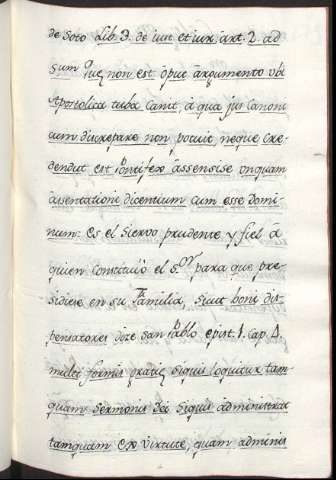 de Soto Lib. 3. de iust. et iur. art. 2. ad
sum Que non est opus argumento ubi
Apostolica tuba Canit, à qua jus Canoni
cum discrepare non potuit neque Cre-
dendus est Pontifex assensise unquam
asentationi dicentium eum esse Domi-
num. es el siervo prudente y fiel à
quien Constituiò el s.or para que pre-
sidiese en su Familia, sicut boni dis-
pensatores dice San Pablo epist. 1. Cap. 4.
multi formis gratiæ siquis loquitur tam-
quam sermonis dei siquis administrat
tamquam ex virtute, quam adminis